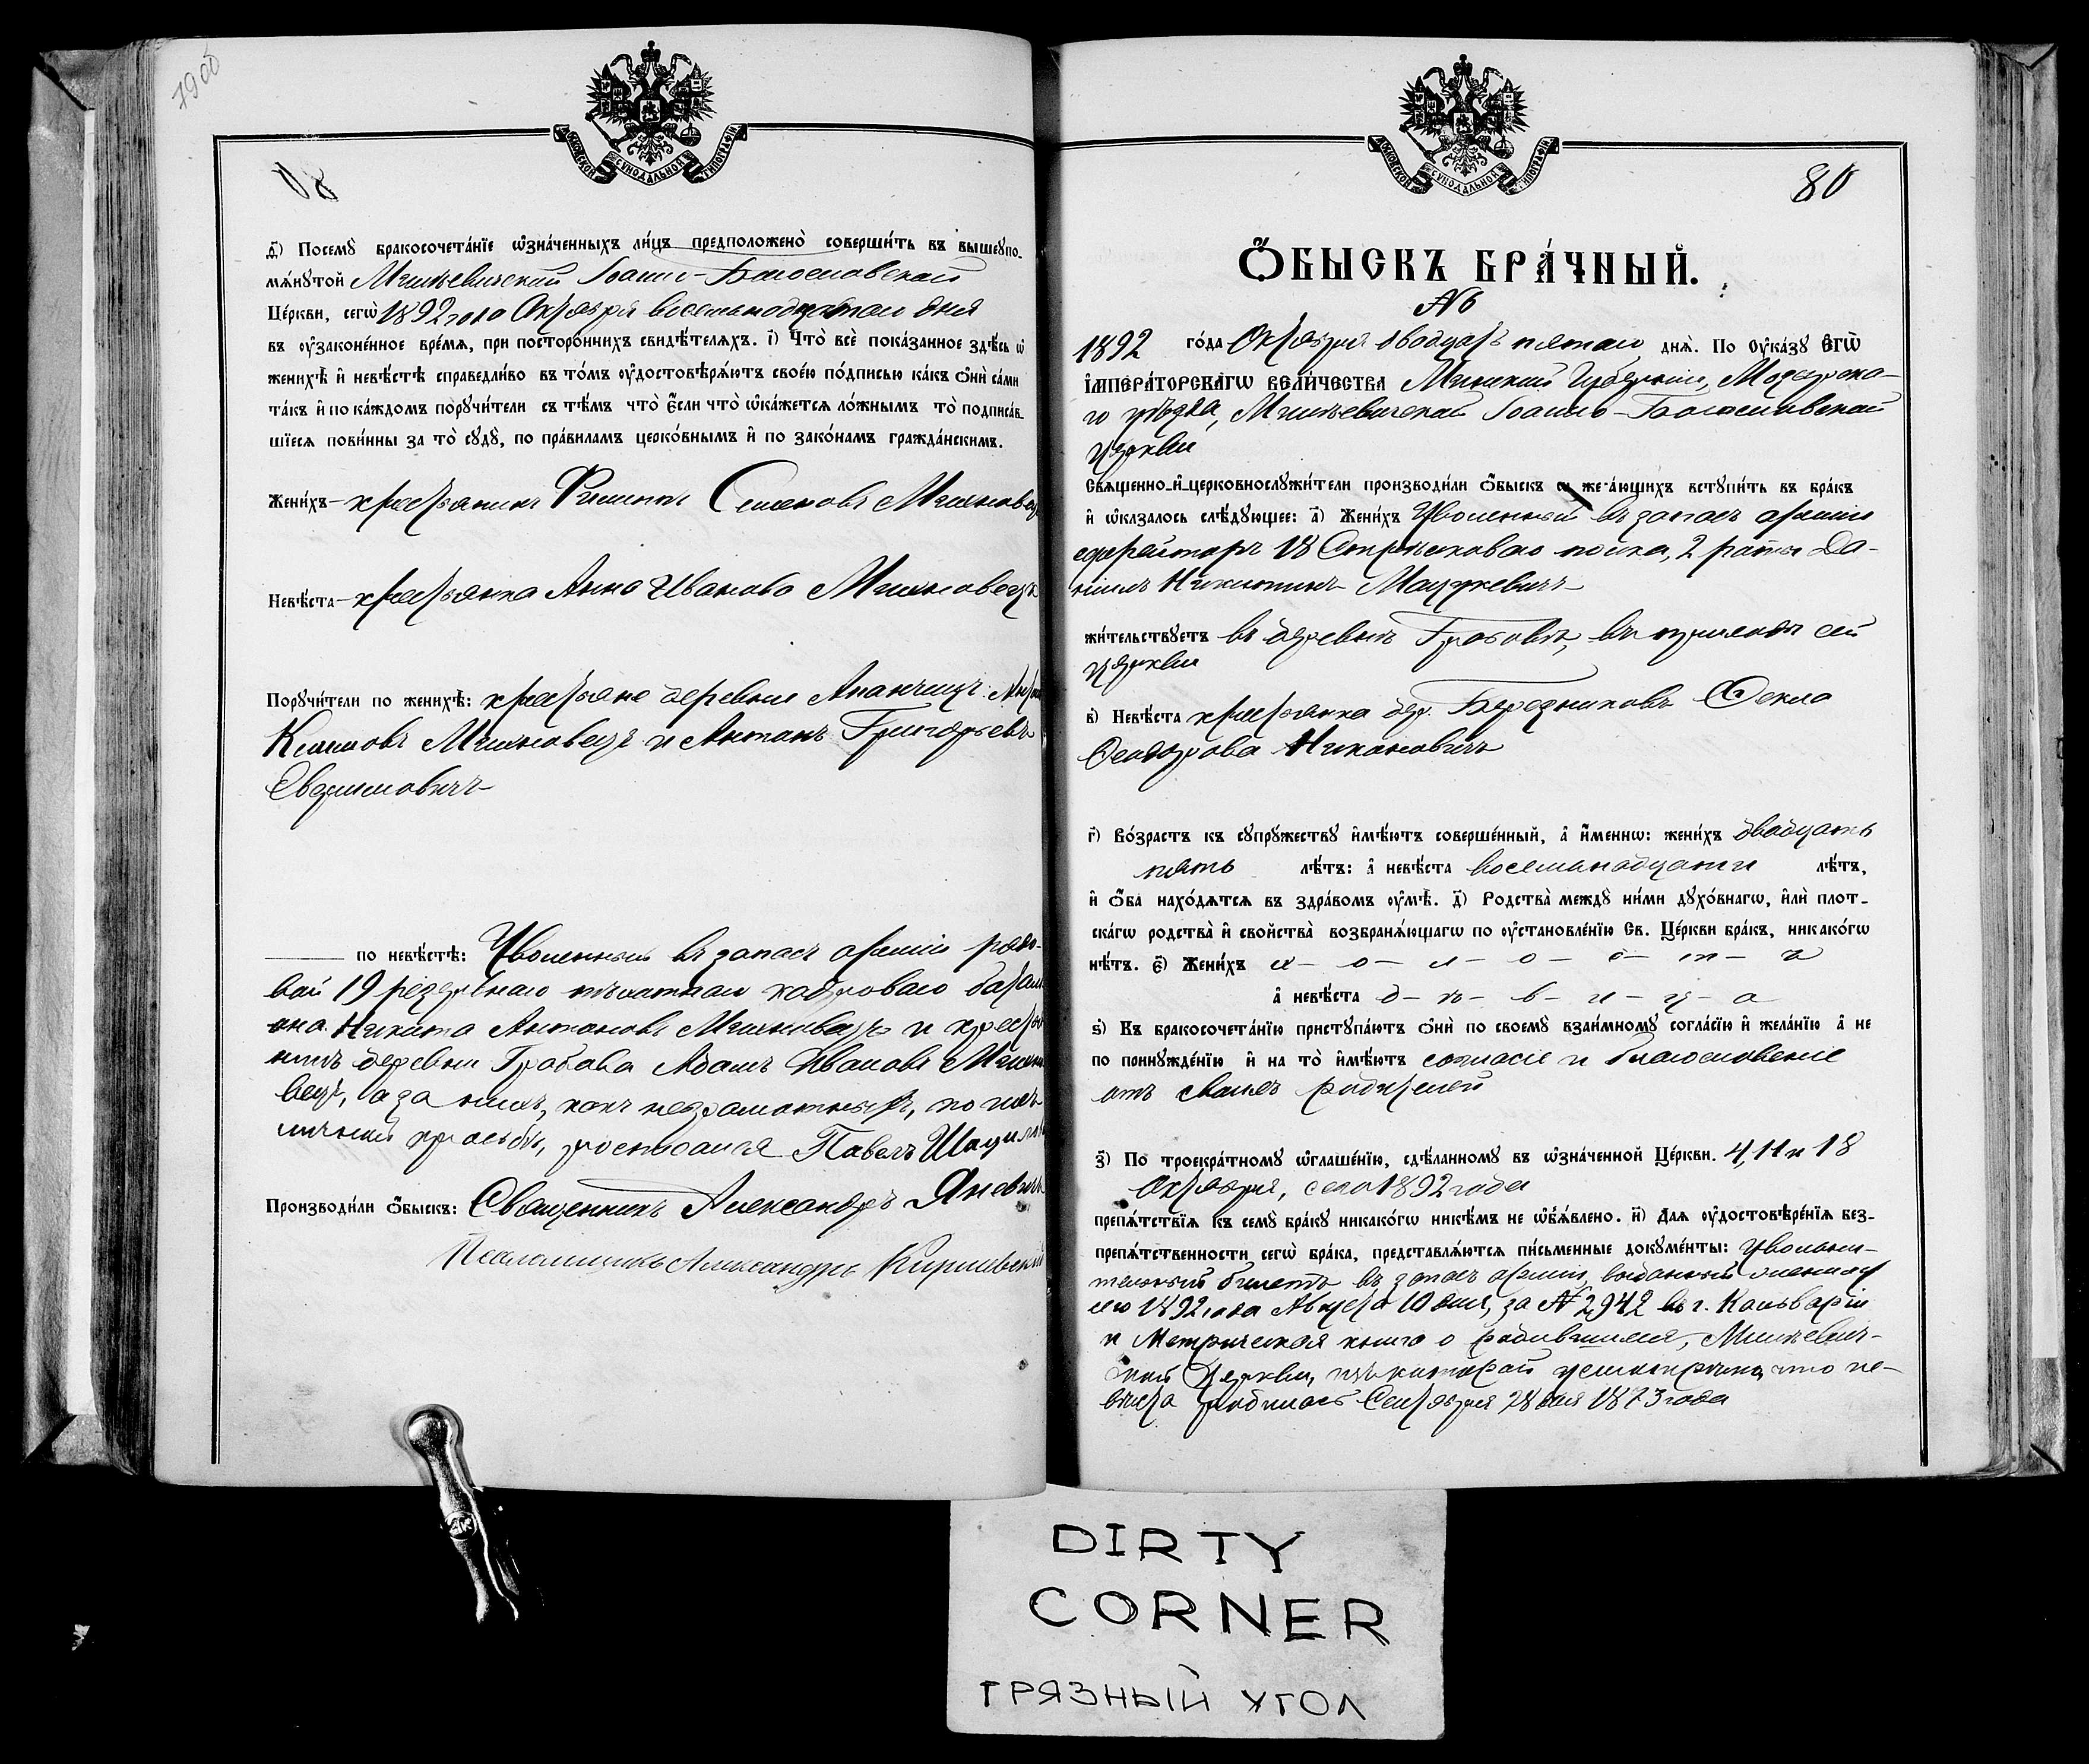 79об
МОСКОВСКОЙ СУНОДАЛЬНОЙ ТИПОГРАФІИ
д҃) Посемꙋ̀ бракосочета́нїе ѡ҆зна́ченныхъ ли́цъ предположено̀ соверши́ть въ вышеꙋпо-
мѧ́нꙋтой Мышевичской Іоанно-Богословской
Це́ркви, сегѡ̀ 1892 года Октября восемьнадцатаго дня
въ ᲂу҆законе́нное вре́мѧ, при посторо́ннихъ свидѣ́телѧхъ. і҃) Что̀ всѐ пока́занное здѣ́сь ѡ҆
женихѣ̀ и҆ невѣ́стѣ справедли́во въ то́мъ ᲂу҆достовѣрѧ́ютъ свое́ю по́дписью ка́къ ѻ҆нѝ са́ми
та́къ и҆ по ка́ждомъ порꙋчи́тели съ тѣ́мъ что̀ є҆́сли что̀ ѡ҆ка́жетсѧ ло́жнымъ то̀ подписа́в-
шїесѧ пови́нны за то̀ сꙋдꙋ̀, по пра́виламъ церко́внымъ и҆ по зако́намъ гражда́нскимъ.
Жени́хъ - крестьянинъ Филиппъ Семеновъ
Невѣ́ста - крестьянка Анна Иванова
Порꙋчи́тели по женихѣ̀: крестьяне деревни
Климовъ и Антонъ Григорьевъ
по невѣ́стѣ: Уволенный въ запасъ арміи рядо-
вой 19 резервнаго пѣхотнаго кадроваго батал
она Никита Антоновъ и кресть
нинъ деревни Грабова Адамъ Ивановъ
вецъ, а за нихъ, какъ неграмотныхъ, по ихъ
личной просьбѣ, росписался Павелъ
Производи́ли ѻ҆́быскъ: Священникъ Александръ Яневичъ
Псаломщикъ Александръ
МОСКОВСКОЙ СУНОДАЛЬНОЙ ТИПОГРАФІИ
80
Ѻ҆́БЫСКЪ БРА́ЧНЫЙ.
№ 6
1892 го́да Октября двадцать пятаго днѧ̀. По Ꙋка́зꙋ Є҆ГѠ̀
І҆МПЕРА́ТОРСКАГѠ ВЕЛИ́ЧЕСТВА Минской Губерніи, Мозырска-
го уѣзда, Мышевичской Іоанно-Богословской
церкви
Свѧщенно-и҆-церковнослꙋжи́тели производи́ли ѻ҆́быскъ ѡ҆ же а́ющихъ встꙋпи́ть въ бра́къ
и҆ ѡ҆казалось слѣ́дꙋющее: а҃) Жени́хъ Уволенный въ запасъ арміи
ефрейторъ 18 Стрѣлковаго полка, 2 роты Да-
ніилъ Никитинъ Мацкевичъ
жи́тельствꙋетъ въ деревнѣ Грабовѣ, въ приходѣ сей
церкви
в҃) Невѣ́ста крестьянка дер. Бередниковъ Ѳекла
Ѳеодорова Никоновичъ
г҃) Во́зрастъ къ сꙋпрꙋ́жествꙋ и҆мѣ́ютъ соверше́нный, а҆ и҆́меннѡ: жени́хъ двадцать
пять лѣ́тъ: а҆ невѣ́ста восемьнадцати лѣ́тъ,
и҆ ѻ҆́ба нахо́дѧтсѧ въ здра́вомъ ᲂу҆мѣ̀. д҃) Родства̀ междꙋ̀ ни́ми дꙋхо́внагѡ, и҆лѝ плот-
ска́гѡ родства̀ и҆ сво́йства возбранѧ́ющагѡ по ᲂу҆становле́нїю Св. Це́ркви бра́къ, никако́гѡ
нѣ́тъ. є҃) Жени́хъ х- о- л- о- с- т- ъ
а҆ невѣ́ста д- ѣ- в- и- ц- а
ѕ҃) Въ бракосочета́нїю пристꙋпа́ютъ ѻ҆нѝ по своемꙋ̀ взаи́мномꙋ согла́сїю и҆ жела́нїю а҆ не
по принꙋжде́нїю и҆ на то̀ и҆мѣ́ютъ согласіе и благословеніе
отъ своихъ родителей
з҃) По троекра́тномꙋ ѡ҆глаше́нїю, сдѣ́ланномꙋ въ ѡ҆зна́ченной Це́ркви. 4, 11 и 18
Октября, сего 1892 года
препѧ́тствїѧ къ семꙋ̀ бра́кꙋ никако́гѡ никѣ́мъ не ѡ҆б̾ѧ́влено. и҃) Длѧ ᲂу҆достовѣре́нїѧ без-
препѧ́тственности сегѡ̀ бра́ка, представлѧ́ютсѧ пи́сьменные докꙋме́нты: Увольни-
тельный билетъ въ запасъ арміи, выданный
сего 1892 года Августа 10 дня, за № 2942 въ г. Кальваріи
и Метрическая книга о родившихся, Мышевич-
ской Церкви, изъ которой усмотрено, что не-
вѣста родилась Сентября 28 дня 1873 года
DIRTY
CORNER
ГРЯЗНЫЙ УГОЛ